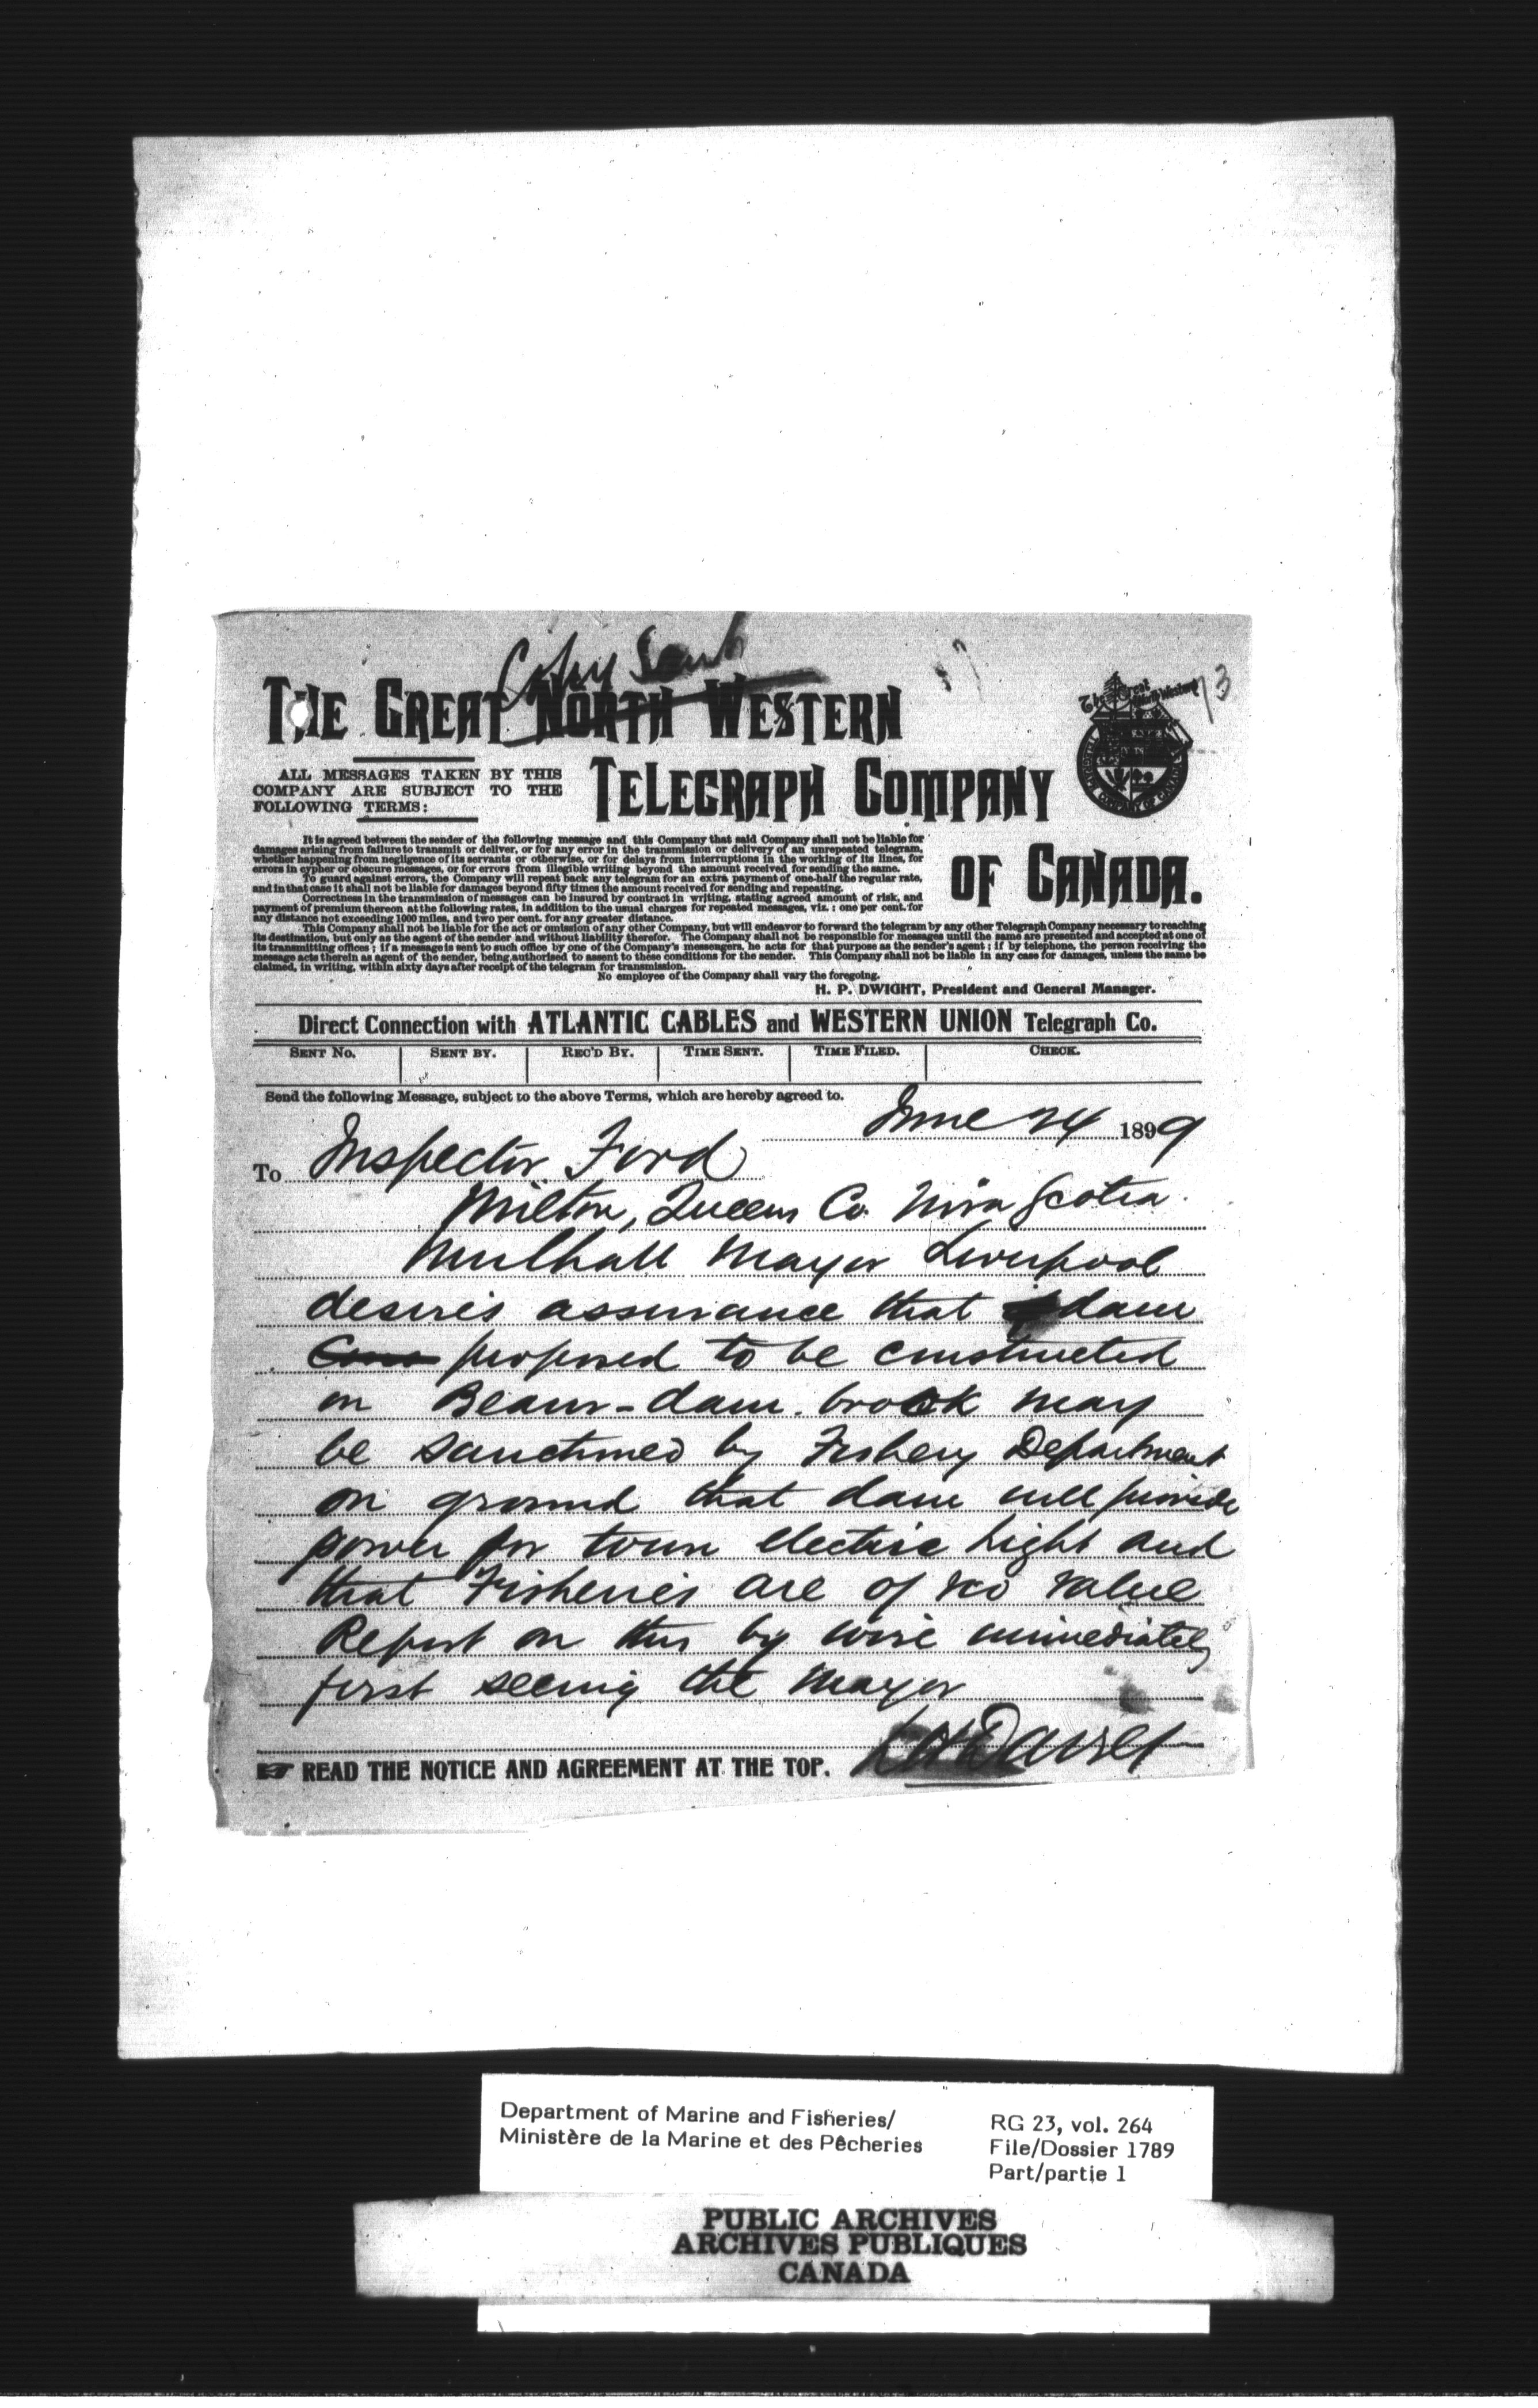 Copy Sent
THE GREAT NORTH WESTERN
73
TELEGRAPH COMPANY
OF CANADA.
ALL MESSAGES TAKEN BY THIS
COMPANY ARE SUBJECT TO THE
FOLLOWING TERMS:
It is agreed between the sender of the following message and this Company that said Company shall not be liable for
damages arising from failure to transmit or deliver, or for any error in the transmission or delivery of an unrepeated telegram,
whether happening from negligence of its servants or otherwise, or for delays from interruptions in the working of its lines, for
errors in cypher or obscure messages, or for errors from illegible writing beyond the amount received for sending the same.
To guard against errors, the Company will repeat back any telegram for an extra payment of one-half the regular rate,
and in that case it shall not be liable for damages beyond fifty times the amount received for sending and repeating.
Correctness in the transmission of messages can be insured by contract in writing, stating agreed amount of risk, and
payment of premium thereon at the following rates, in addition to the usual charges for repeated messages, viz.: one per cent. for
any distance not exceeding 1000 miles, and two per cent. for any greater distance.
This Company shall not be liable for the act or omission of any other Company, but will endeavor to forward the telegram by any other Telegraph Company necessary to reaching
its destination, but only as the agent of the sender and without liability therefor. The Company shall not be responsible for messages until the same are presented and accepted at one of
its transmitting offices; if a message is sent to such office by one of the Company's messengers, he acts for that purpose as the sender's agent; if by telephone, the person receiving the
message acts therein as agent of the sender, being authorised to assent to these conditions for the sender. This Company shall not be liable in any case for damages, unless the same be
claimed, in writing, within sixty days after receipt of the telegram for transmission.
No employee of the Company shall vary the foregoing.
H. P. DWIGHT, President and General Manager.
Direct Connection with ATLANTIC CABLES and WESTERN UNION Telegraph Co.
SENT NO. SENT BY. REC'D BY. TIME SENT. TIME FILED. CHECK.
Send the following Message, subject to the above Terms, which are hereby agreed to.
June 24 1899
To Inspector Ford
Milton, Queens Co. Nova Scotia.
Mulhall Mayor Liverpool
desires assurance that dam
proposed to be constructed
on Beaver-dam brook may
be sanctioned by Fishery Department
on ground that dam will provide
power for town electric light and
that Fisheries are of no value
Report on this by wire immediately
first seeing the Mayor
READ THE NOTICE AND AGREEMENT AT THE TOP.
Department of Marine and Fisheries/
Ministère de la Marine et des Pêcheries
RG 23, vol. 264
File/Dossier 1789
Part/partie 1
PUBLIC ARCHIVES
ARCHIVES PUBLIQUES
CANADA